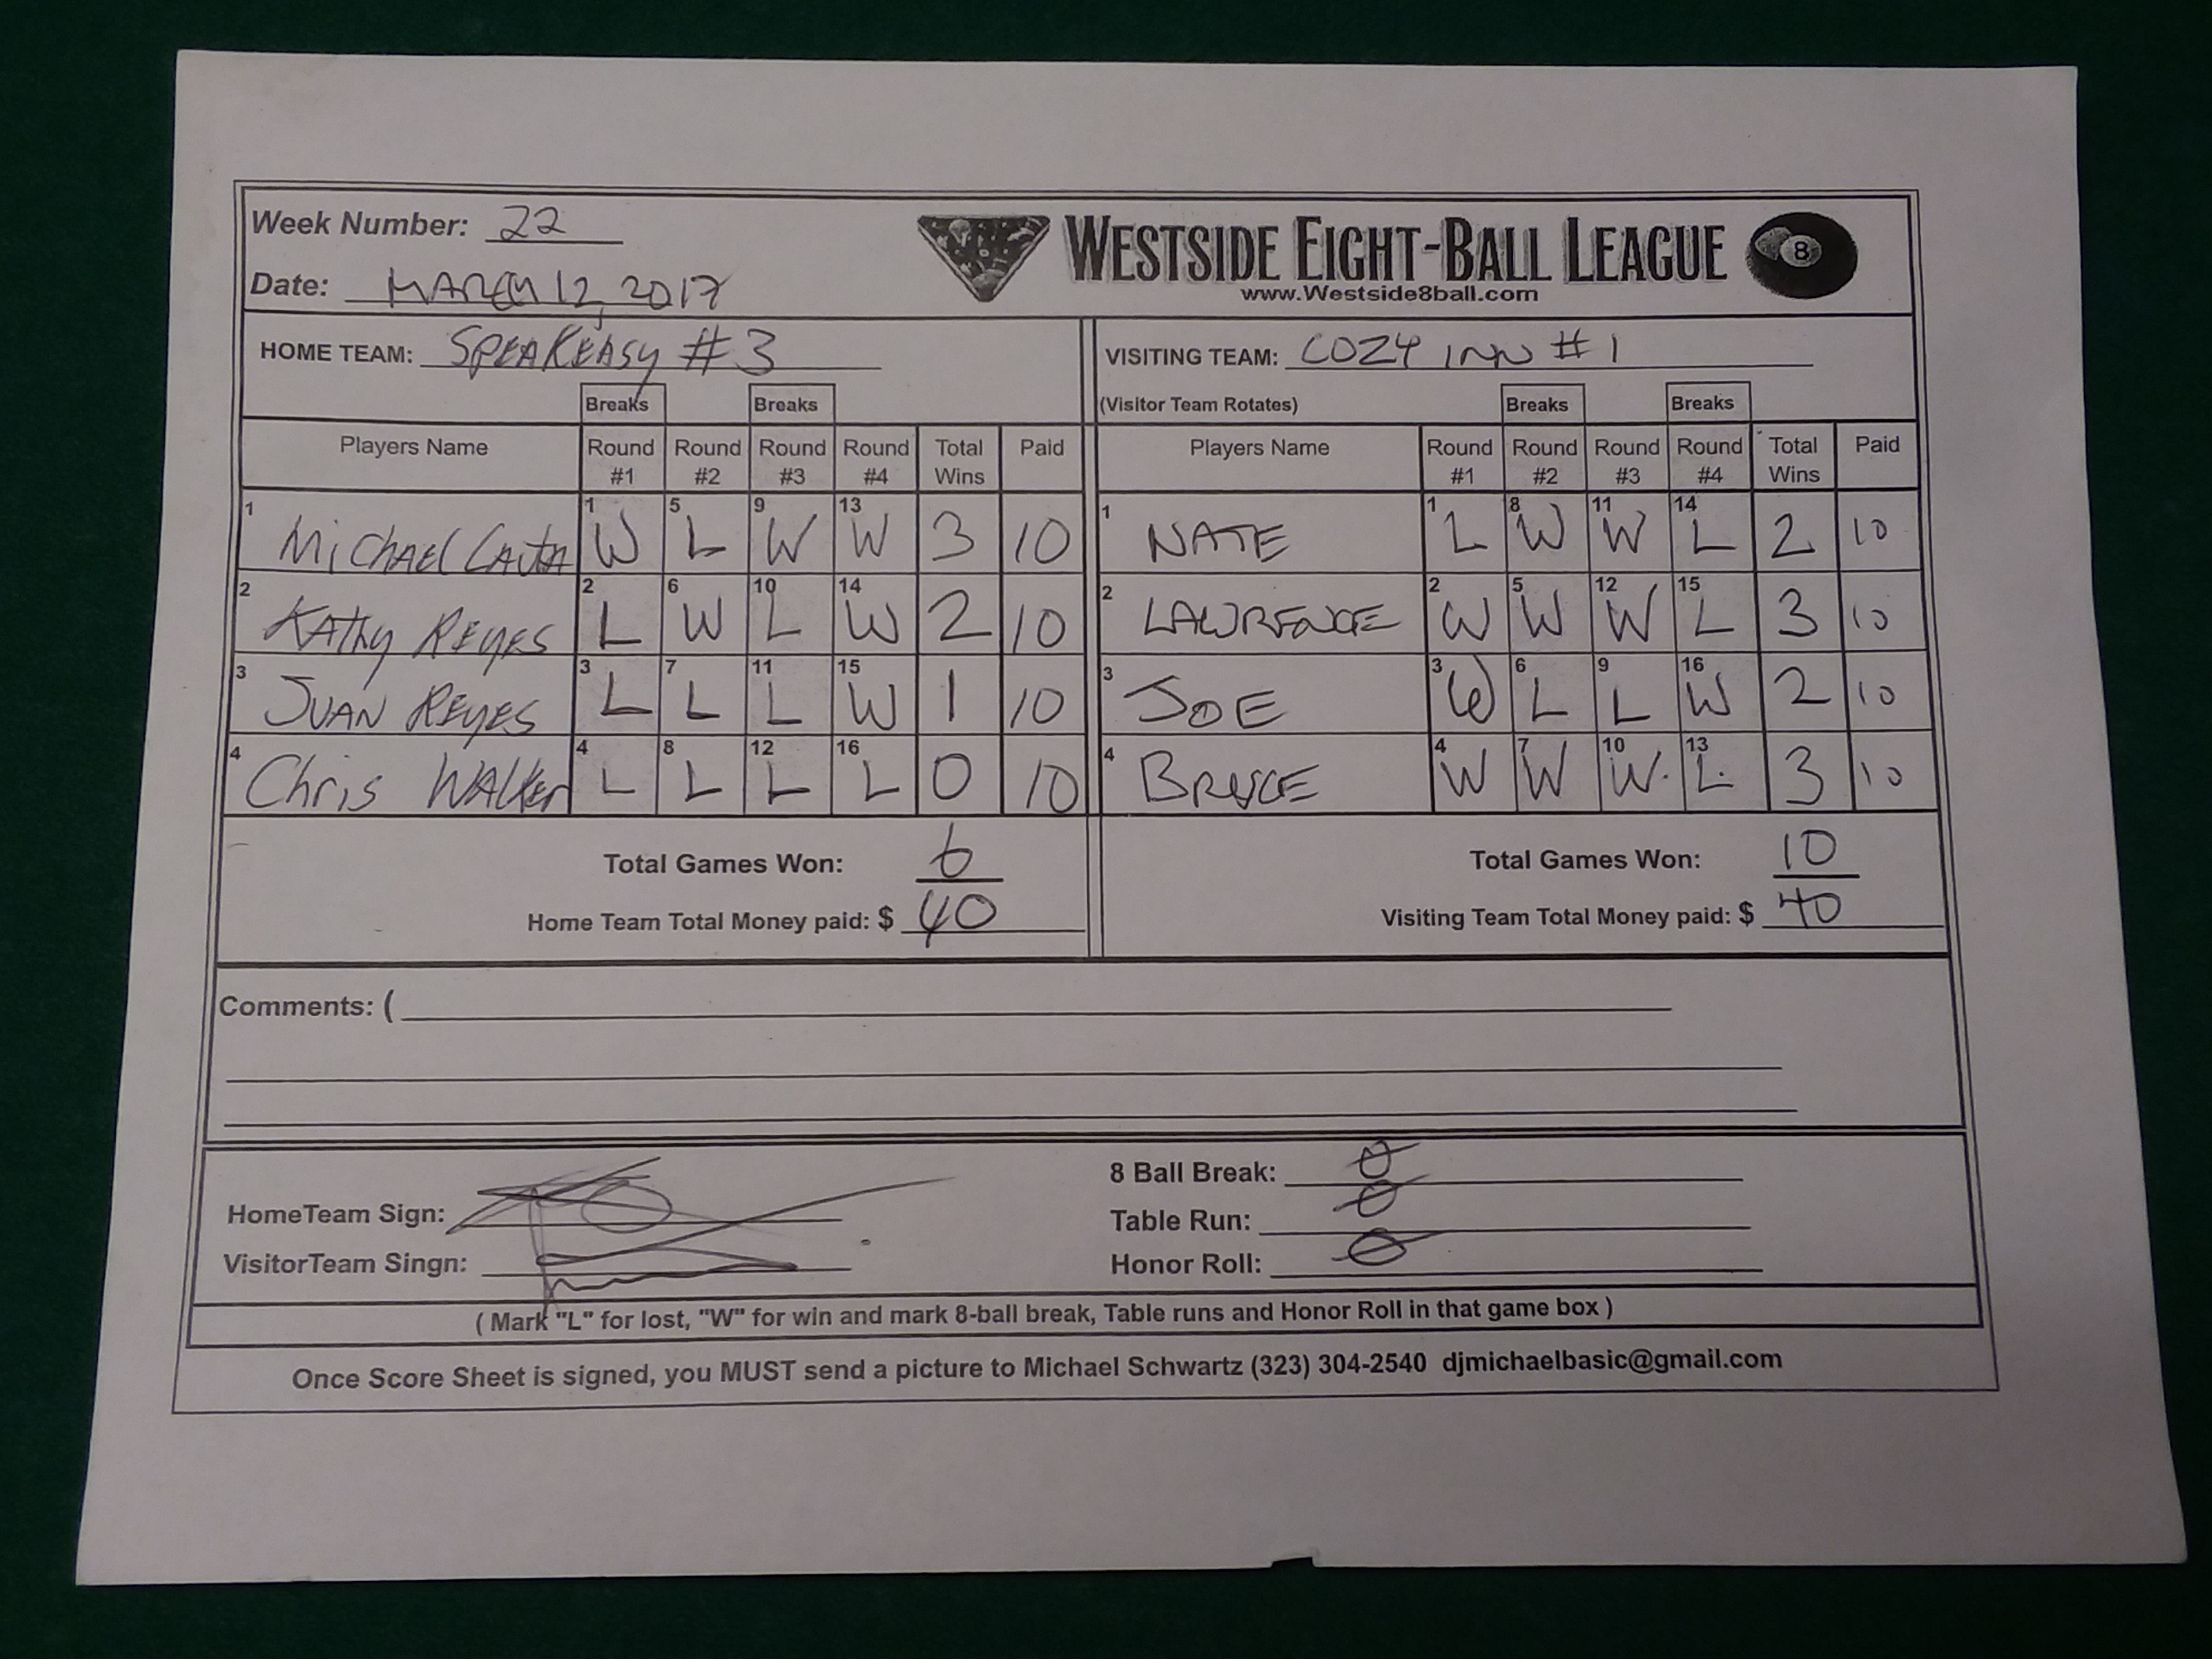 Week Number: 22
WESTSIDE EIGHT-BALL LEAGUE 8
Date: MARCH 12, 2017
www.Westside8ball.com
HOME TEAM: SPEAKEASY #3
VISITING TEAM: COZY INN #1
Breaks Breaks
(Visitor Team Rotates) Breaks Breaks
Players Name Round #1 Round #2 Round #3 Round #4 Total Wins Paid
Players Name Round #1 Round #2 Round #3 Round #4 Total Wins Paid
1 MiCHAEL 1 W 5 L 9 W 13 W 3 10
1 NATE 1 L 8 W 11 W 14 L 2 10
2 KATHy REyES 2 L 6 W 10 L 14 W 2 10
2 LAWRENCE 2 W 5 W 12 W 15 L 3 10
3 JUAN REyES 3 L 7 L 11 L 15 W 1 10
3 JOE 3 W 6 L 9 L 16 W 2 10
4 Chris WALKER 4 L 8 L 12 L 16 L 0 10
4 BRUCE 4 W 7 W 10 W. 13 L. 3 10
Total Games Won: 6
Total Games Won: 10
Home Team Total Money paid: $ 40
Visiting Team Total Money paid: $ 40
Comments: (
8 Ball Break: 0
HomeTeam Sign:
Table Run: 0
VisitorTeam Singn:
Honor Roll: 0
( Mark "L" for lost, "W" for win and mark 8-ball break, Table runs and Honor Roll in that game box )
Once Score Sheet is signed, you MUST send a picture to Michael Schwartz (323) 304-2540 djmichaelbasic@gmail.com